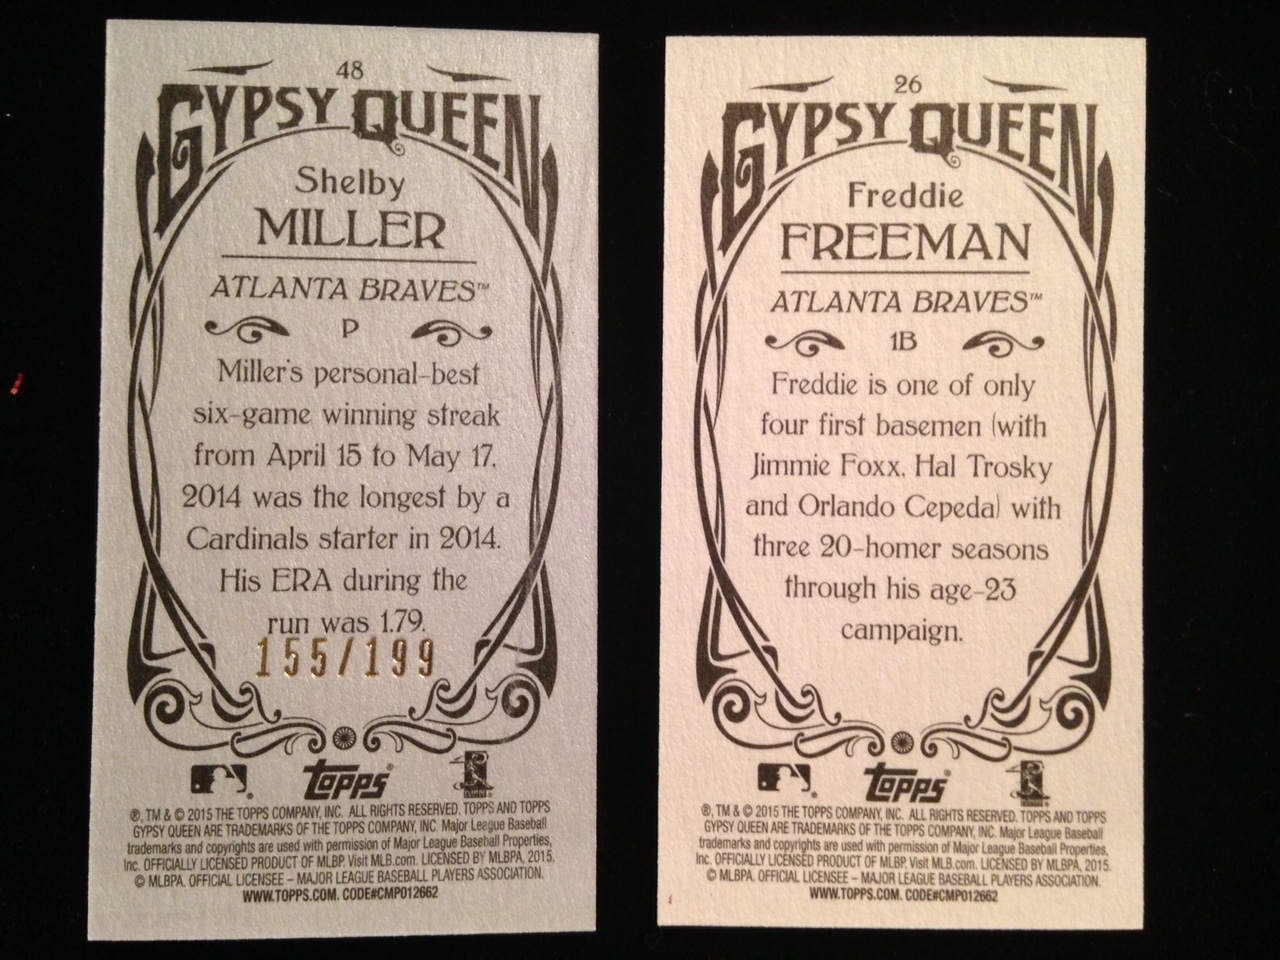 48
GYPSY QUEEN
Shelby
MILLER
ATLANTA BRAVES™
P
Miller's personal-best
six-game winning streak
from April 15 to May 17,
2014 was the longest by a
Cardinals starter in 2014.
His ERA during the
run was 1.79.
155/199
topps®
®, TM & © 2015 THE TOPPS COMPANY, INC. ALL RIGHTS RESERVED. TOPPS AND TOPPS
GYPSY QUEEN ARE TRADEMARKS OF THE TOPPS COMPANY, INC. Major League Baseball
trademarks and copyrights are used with permission of Major League Baseball Properties,
Inc. OFFICIALLY LICENSED PRODUCT OF MLBP. Visit MLB.com. LICENSED BY MLBPA, 2015.
© MLBPA. OFFICIAL LICENSEE – MAJOR LEAGUE BASEBALL PLAYERS ASSOCIATION.
WWW.TOPPS.COM. CODE#CMP012662
26
GYPSY QUEEN
Freddie
FREEMAN
ATLANTA BRAVES™
1B
Freddie is one of only
four first basemen (with
Jimmie Foxx, Hal Trosky
and Orlando Cepeda) with
three 20-homer seasons
through his age-23
campaign.
topps®
®, TM & © 2015 THE TOPPS COMPANY, INC. ALL RIGHTS RESERVED. TOPPS AND TOPPS
GYPSY QUEEN ARE TRADEMARKS OF THE TOPPS COMPANY, INC. Major League Baseball
trademarks and copyrights are used with permission of Major League Baseball Properties,
Inc. OFFICIALLY LICENSED PRODUCT OF MLBP. Visit MLB.com. LICENSED BY MLBPA, 2015.
© MLBPA. OFFICIAL LICENSEE – MAJOR LEAGUE BASEBALL PLAYERS ASSOCIATION.
WWW.TOPPS.COM. CODE#CMP012662